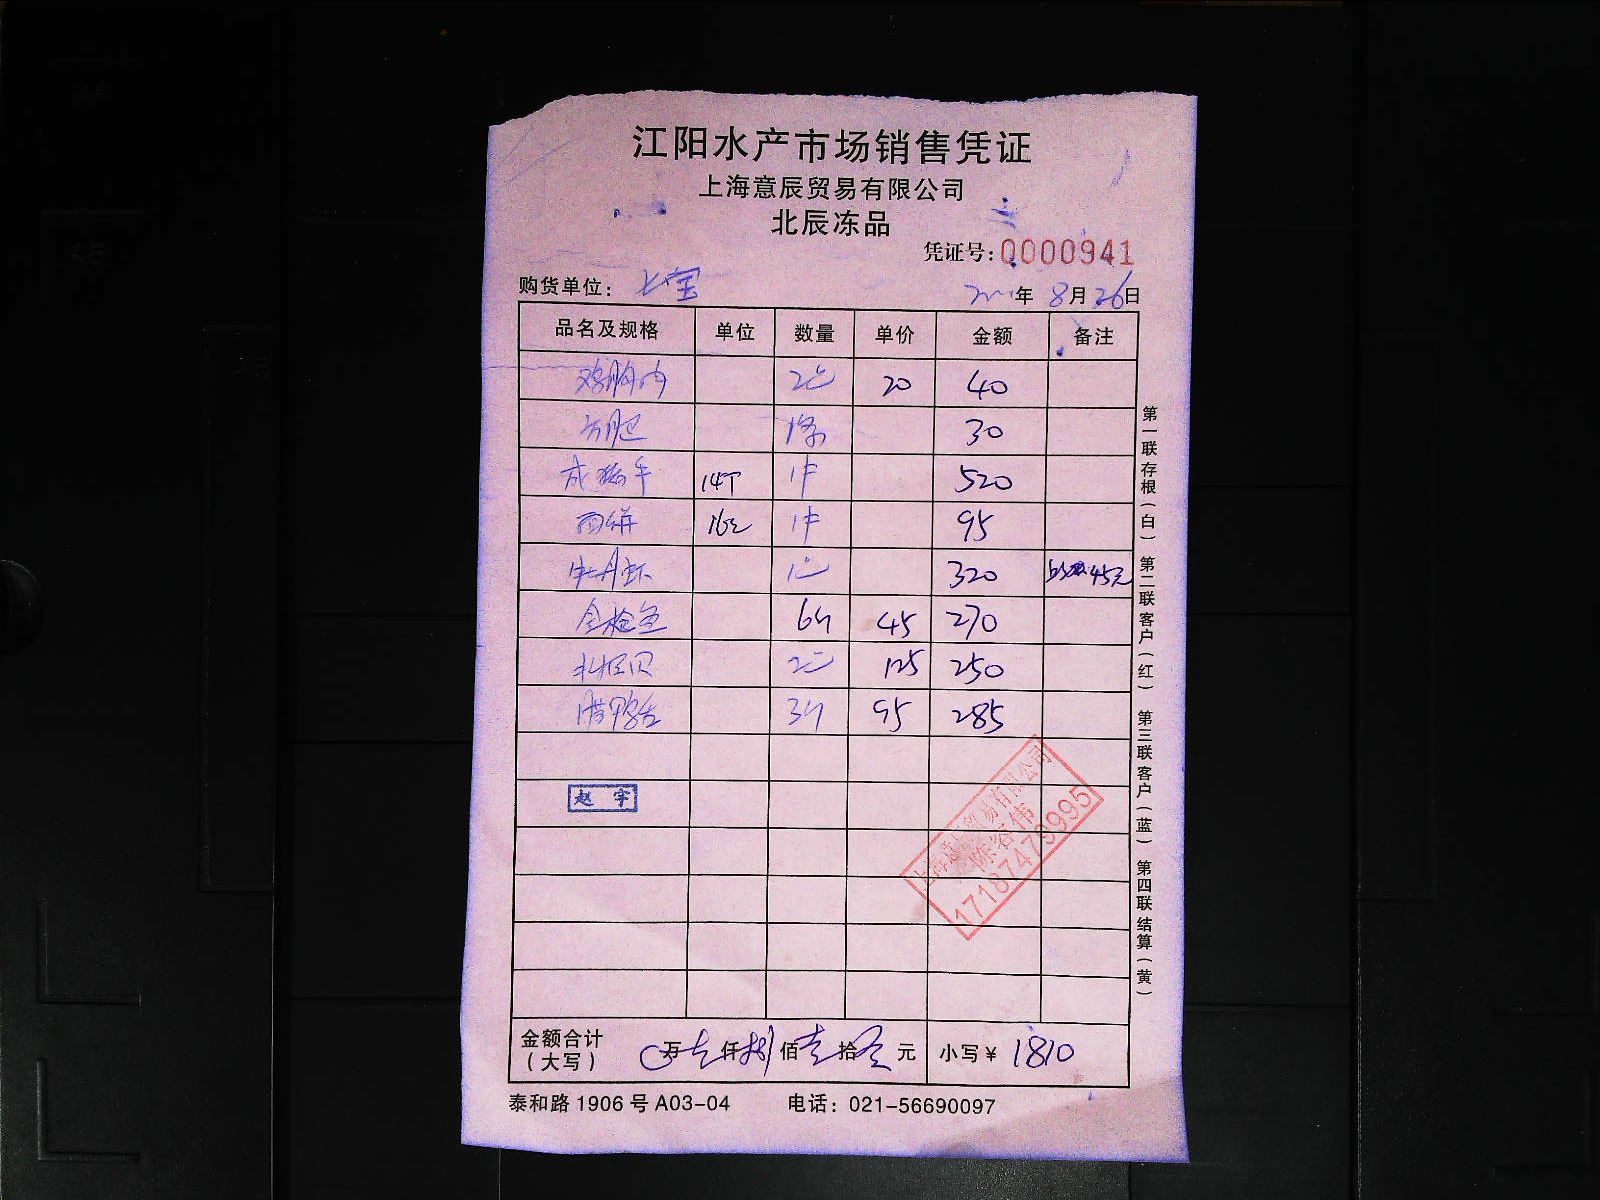 江阳水产市场销售凭证
上海意辰贸易有限公司
北辰冻品
凭证号:0000941
购货单位: 七宝
年 8月26日
品名及规格 单位 数量 单价 金额 备注
鸡胸肉 2包 20 40
方肥 1条 30
14个 1件 520
西饼 16包 1件 95
牡丹虾 1包 320 45元
金枪鱼 6斤 45 270
北极贝 2包 125 250
腊鸭舌 3斤 95 285
赵宇
上海意辰贸易有限公司
陈容伟
17187479995
金额合计(大写) 万壹仟捌佰壹拾零元 小写¥ 1810
泰和路1906号A03-04 电话: 021-56690097
第一联存根(白) 第二联客户(红) 第三联客户(蓝) 第四联结算(黄)